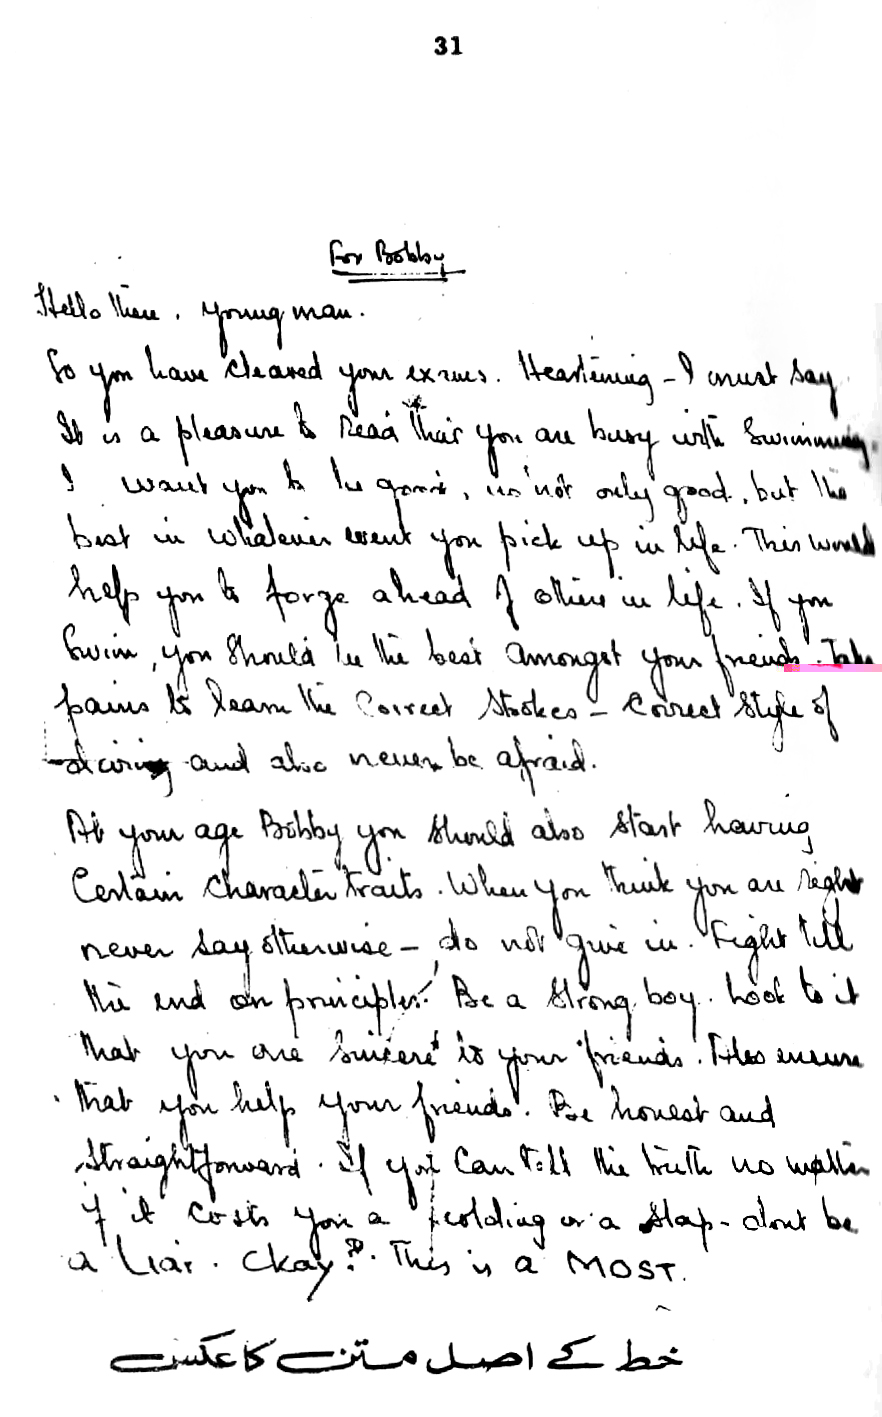 31
For Bobby
Hello there, young man.
So you have cleared your exams. Heartening - I must say
It is a pleasure to Read that you are busy with Swimming.
I want you to be good, no not only good, but the
best in whatever event you pick up in life. This would
help you to forge ahead of others in life. If you
Swim, you should be the best amongst your friends. Take
pains to learn the Correct Stokes - Correct Style of
diving and also never be afraid.
At your age Bobby you should also start having
Certain character traits. When you think you are right
never say otherwise - do not give in. Fight till
the end on principles! Be a strong boy. Look to it
that you are sincere to your friends. Also ensure
that you help your friends. Be honest and
Straightforward. If you can tell the truth no matter
if it costs you a scolding or a slap - dont be
a liar. Okay? This is a MOST.
خط کے اصل متن کا عکس